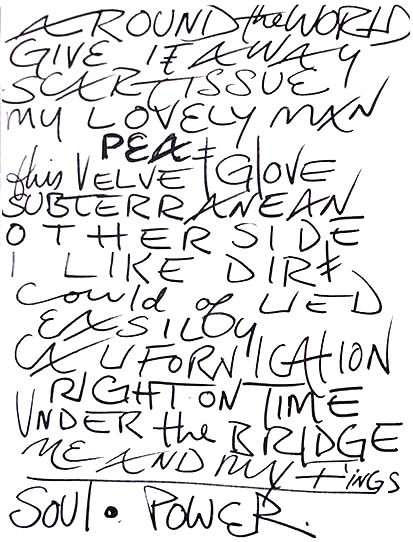 AROUND the WORLD
GIVE IT AWAY
SCAR TISSUE
MY LOVELY MAN
PEA
this VELVET GLOVE
SUBTERRANEAN
OTHERSIDE
I LIKE DIRT
could of LIED
EASILY
CALIFORNICATION
RIGHT ON TIME
UNDER the BRIDGE
ME AND MY tINGS
SOUL • POWER.